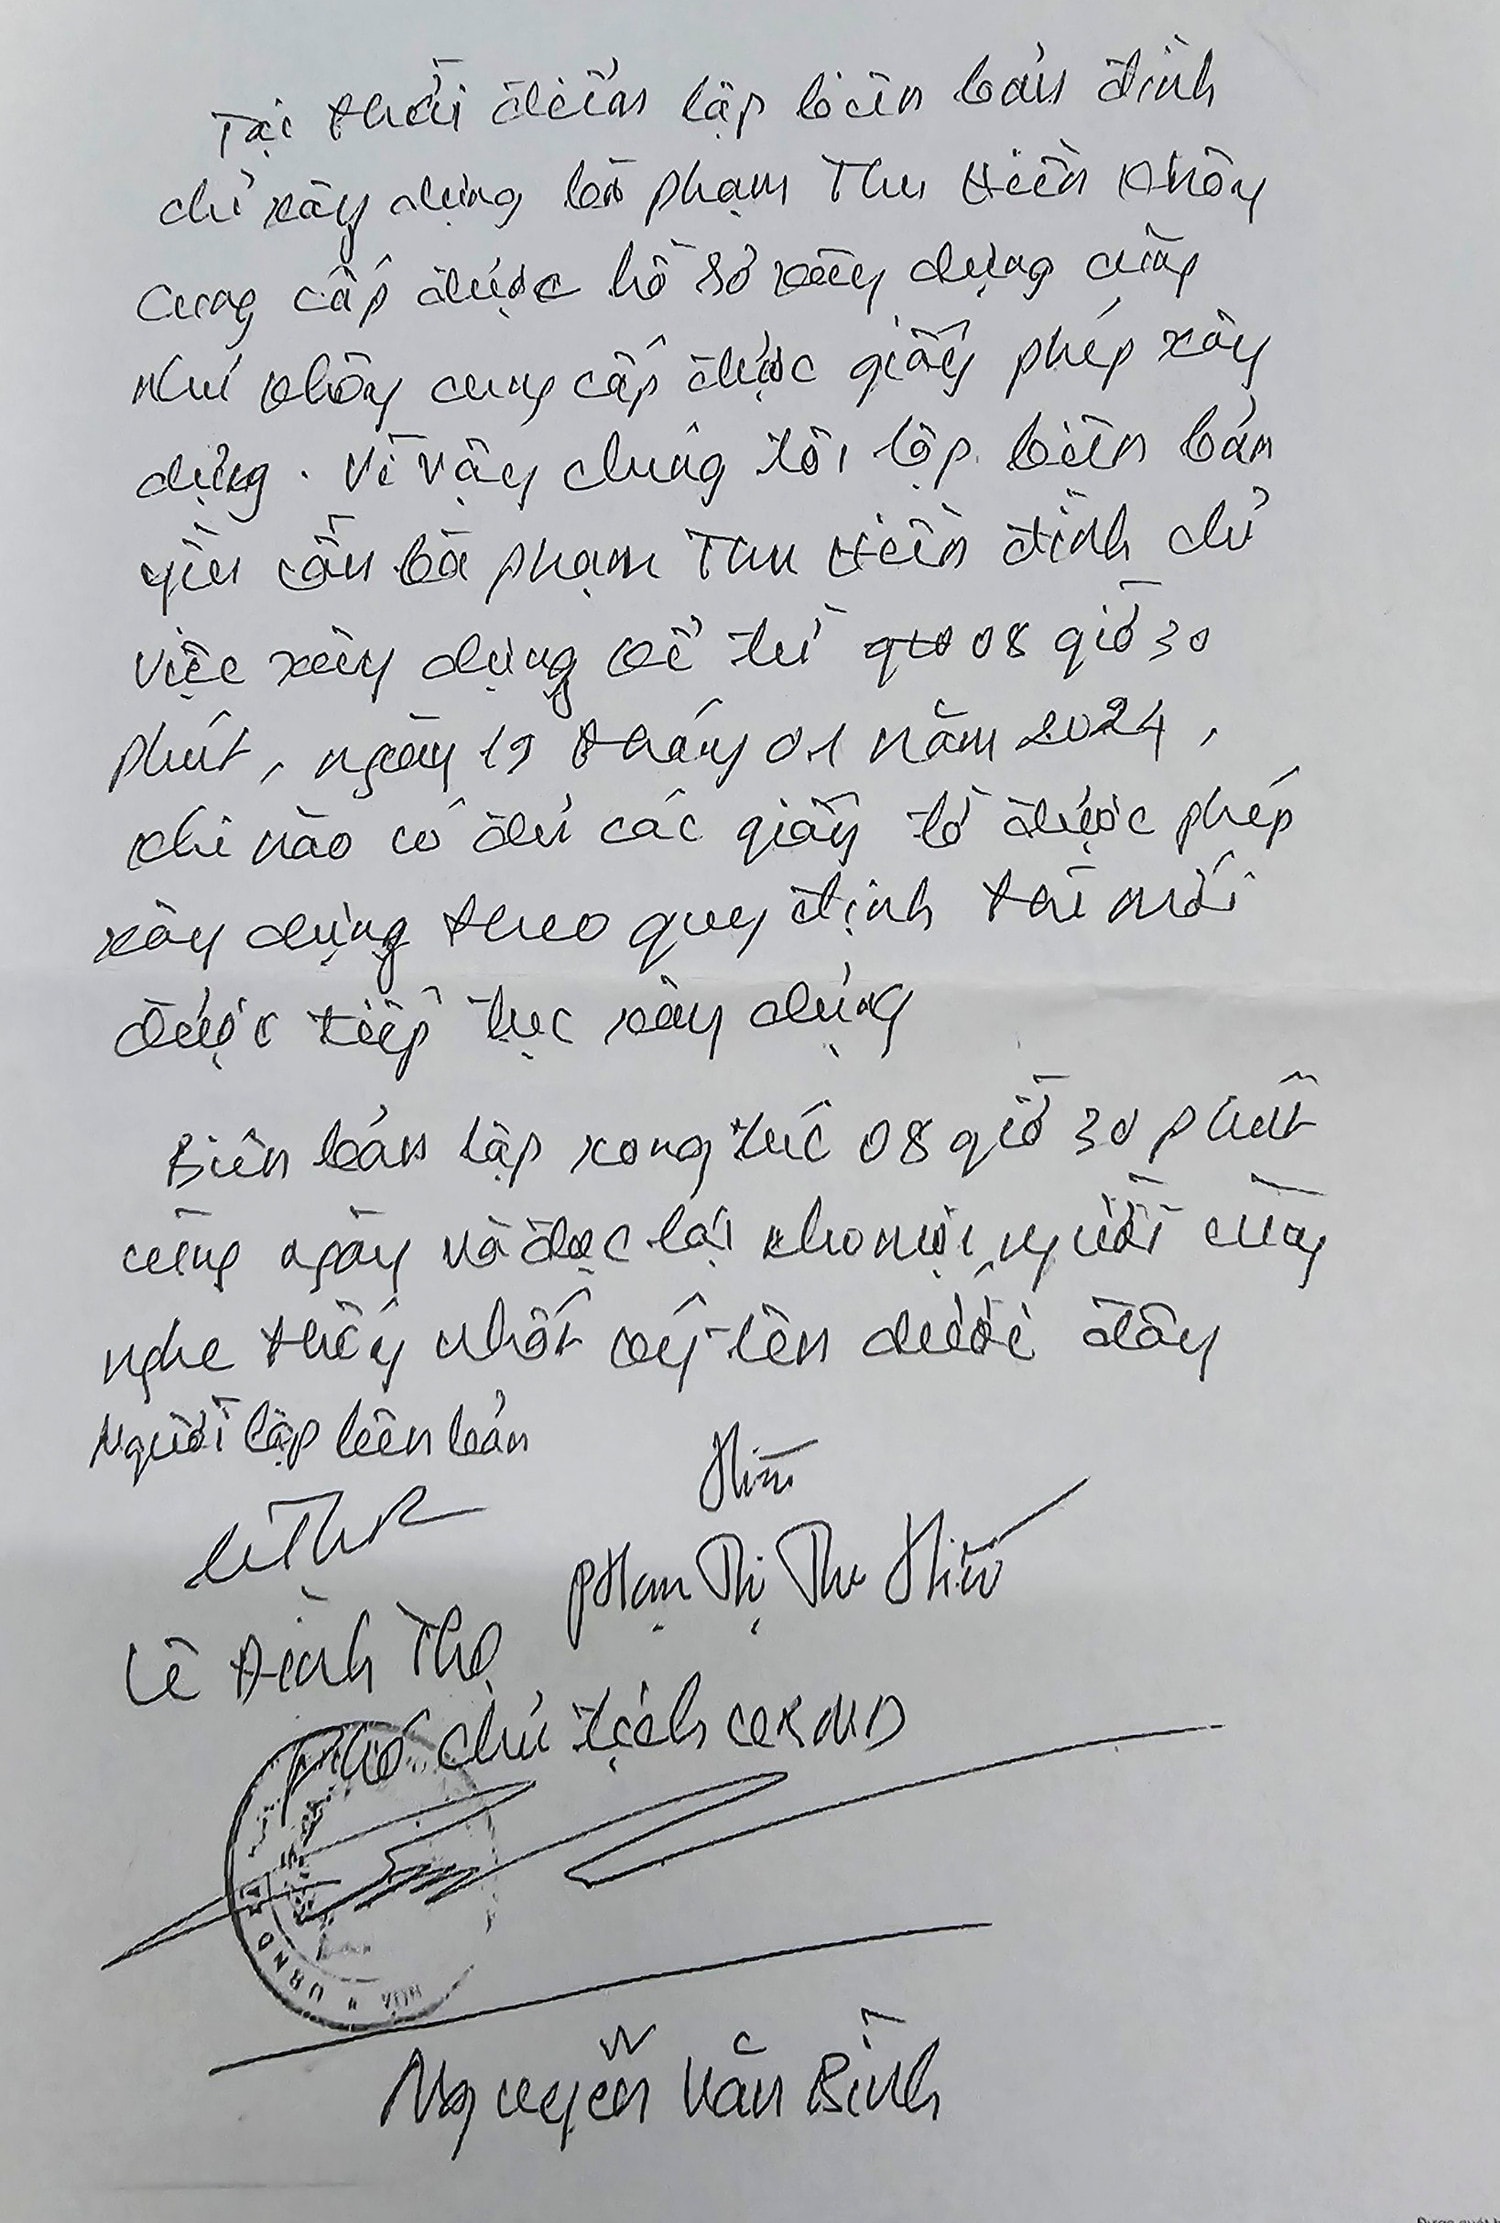 Tại thời điểm lập biên bản đình
chỉ xây dựng bà Phạm Thu Hiền không
cung cấp được hồ sơ xây dựng cũng
như không cung cấp được giấy phép xây
dựng. Vì vậy chúng tôi lập biên bản
yêu cầu bà Phạm Thu Hiền đình chỉ
việc xây dựng kể từ 08 giờ 30
phút, ngày 19 tháng 01 năm 2024,
khi nào có đủ các giấy tờ được phép
xây dựng theo quy định thì mới
được tiếp tục xây dựng
Biên bản lập xong lúc 08 giờ 30 phút
cùng ngày và đọc lại cho mọi người cùng
nghe thấy nhất ký tên dưới đây
Người lập biên bản
Phạm Thị Thu Hiền
Lê Đình Thọ
Phó chủ tịch UBND
UBND
Nguyễn Văn Bình